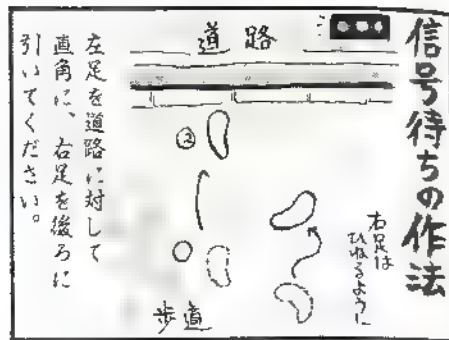 信号待ちの作法
道路
右足は
ひねるように
②
歩道
左足を道路に対して
直角に、右足を後ろに
引いてください。